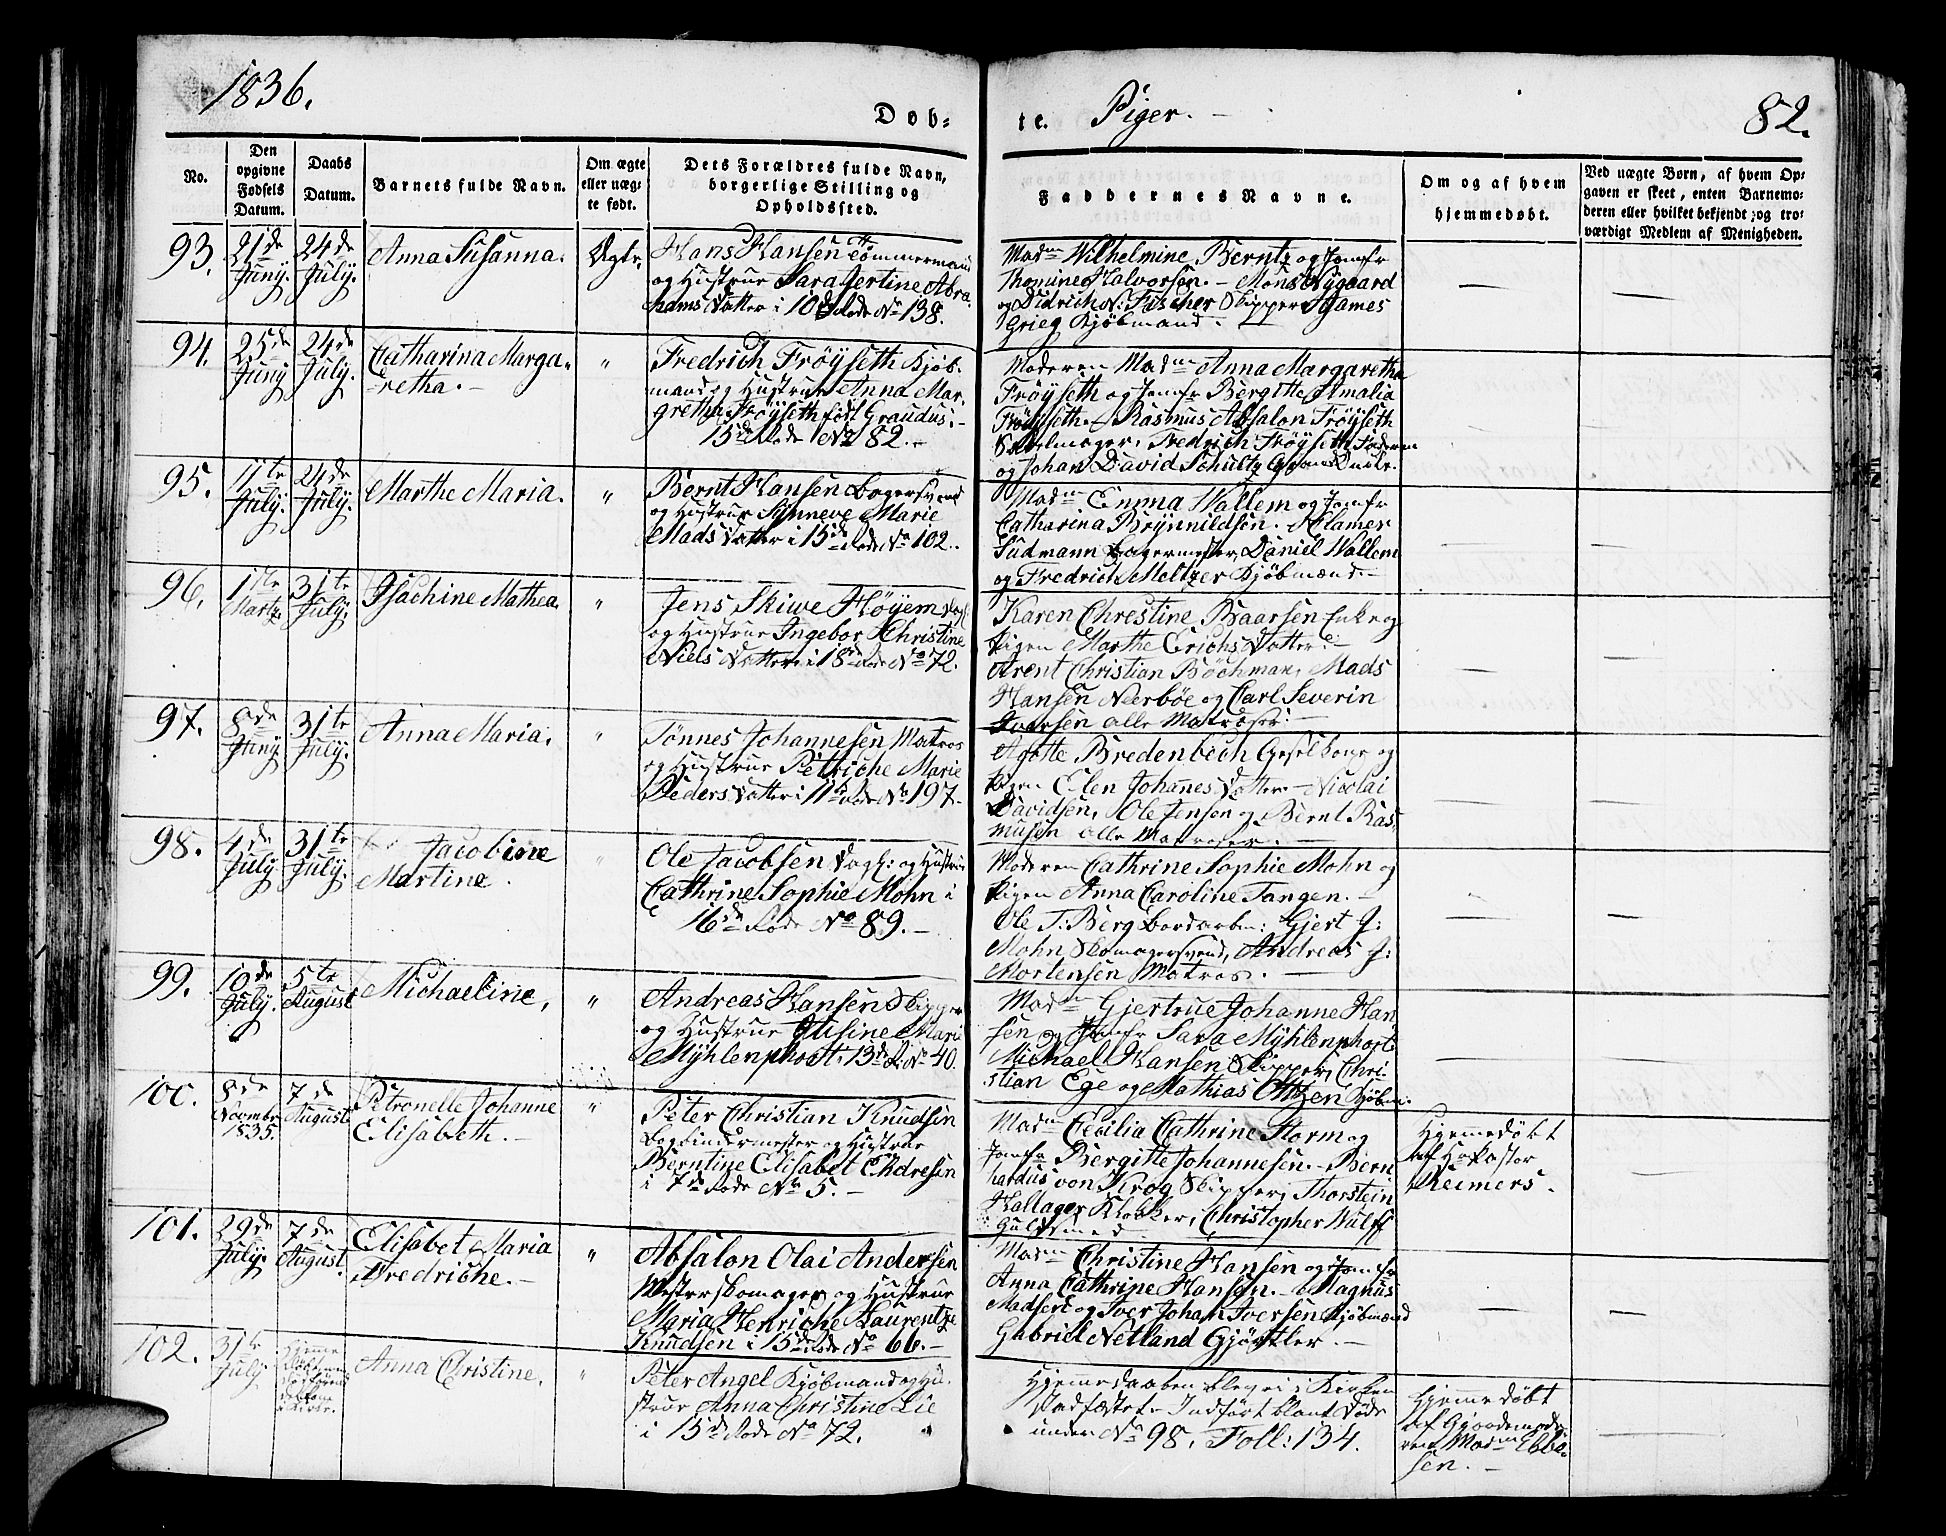 1836.
Døb-
te.
Piger. -
82.
No.
Den
opgivne
Fødsels
Datum.
Daabs
Datum.
Barnets fulde Navn.
Om ægte
eller uæg-
te født.
Dets Forældres fulde Navn,
borgerlige Stilling og
Opholdssted.
Faddernes Navne.
Om og af hvem
hjemmedøbt.
Ved uægte Børn, af hvem Op-
gaven er skeet, enten Barnemo-
deren eller hvilket bekjendt og tro-
værdigt Medlem af Menigheden.
93.
21de
Juny.
24de
July.
Anna Susanna.
Ægte.
Hans Hansen Tømmermand
og Hustrue Sara Jertine Abra
hams Datter i 10de Rode No 138.
Madme Wilhelmine Berntz og Jomfr
Thomine Halvorsen. - Mons Nygaard
og Didrich N: Fischer Skipper James
Grieg Kjøbmand.
94.
25de
Juny
24de
July.
Catharina Marga-
retha. -
"
Fredrich Frøyseth Kjøb-
mand og Hustrue Anna Mar-
gretha Frøyseth født Graudus. -
15de Rode No 82. -
Moderen Madme Anna Margaretha
Frøyseth og Jomfr Bergitte Amalia
Frøyseth. - Rasmus Absalon Frøyseth
Sadelmager, Fredrich Frøyseth Faderen
og Johan David Schultz
95.
11te
July.
24de
July.
Marthe Maria.
"
Bernt Hansen Bagersvend
og Hustrue Synneve Marie
Mads Datter i 15de Rode No 102.
Madme Emma Wallem og Jomfr
Catharina Brynnildsen. - Clamer
Sudmann Bagermester, Daniel Wallem
og Fredrich Meltzer Kjøbmænd. -
96.
1ste
Martz.
31te
July.
Isachine Mathea.
"
Jens Skiwe Høyem Dagk:
og Hustrue Ingebor Christine
Niels Datter i 18de Rode No 72.
Karen Chrestine Baarsen Enke og
Pigen Marthe Erichs Datter. -
Arent Christian Bøchman, Mads
Hansen Neerbøe og Carl Severin
Iversen alle Matroser. -
97.
8de
Juny
31te
July.
Anna Maria.
"
Tønnes Johannesen Matros
og Hustrue Petriche Marie
Peders Datter i 11te Rode No 197.
Agathe Bredenbech og
Pigen Elen Johanes Datter. - Nicolai
Davidsen, Ole Jensen og Bernt Ras
musen alle Matroser. -
98.
4de
July
31te
July.
Jacobine
Martine.
"
Ole Jacobsen Dagk: og Hustrue
Cathrine Sophie Mohn i
16de Rode No 89. -
Moderen Cathrine Sophie Mohn og
Pigen Anna Caroline Tangen. -
Ole T: Berg Bordarbn: Gjert J:
Mohn Skomagersvend, Andreas J:
Mortensen Matros. -
99.
10de
July.
5te
August
Michaeline,
"
Andreas Hansen Skipper
og Hustrue Elisine Marie
Myhlenphort i 13de R: No 40.
Madme Gjertrue Johanne Han
sen og Jomfr Sara Myhlenphort
Michael Hansen Skipper, Chri-
stian Ege og Mathias Ottzen Kjøbm.
100.
8de
Novembr
1835.
7de
August
Petronelle Johanne
Elisabeth. -
"
Peter Christian Knudsen
Bogbindermester og Hustrue
Berntine Elisabet Endresen
i 7de Rode No 5. -
Madme Cecilia Cathrine Storm og
Jomfr Bergitte Johannesen. - Bern
hardus von Krog Skipper, Thorstein
Hallager Klokker, Christopher Wulff
Guldsmed
Hjemmedøbt
af Hr Pastor
Reimers.
101.
29de
July.
7de
August.
Elisabet Maria
Fredriche. -
"
Absalon Olai Andersen
Mesterskomager og Hustrue
Maria Henriche Laurentze
Knudsen i 15de Rode No 66. -
Madme Christine Hansen og Jomfr
Anna Cathrine Hansen. - Magnus
Madsen og Iver Johan Iversen Kjøbmænd
Gabriel Netland Gjørtler. -
102.
31te
July
Hjeme
Anna Christine.
"
Peter Angel Kjøbmand og Hu-
strue Anna Christine Lie
i 15de Rode No 72.
Hjemedaaben bleg ei i Kirken
Stadfæstet. - Indført blant Døde
under No 98. Foll: 134.
Hjemmedøbt
af Gjordemode-
ren Madme Ebbe-
sen. -